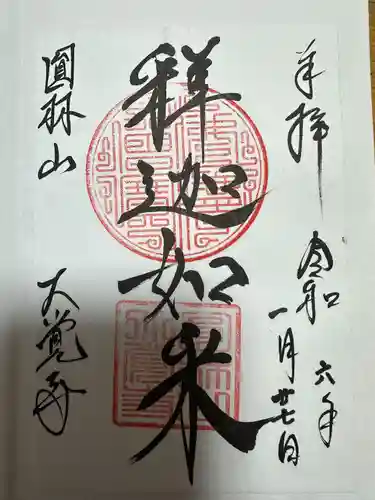 奉拝
令和六年
一月廿七日
釈迦如来
圓林山
大覚寺